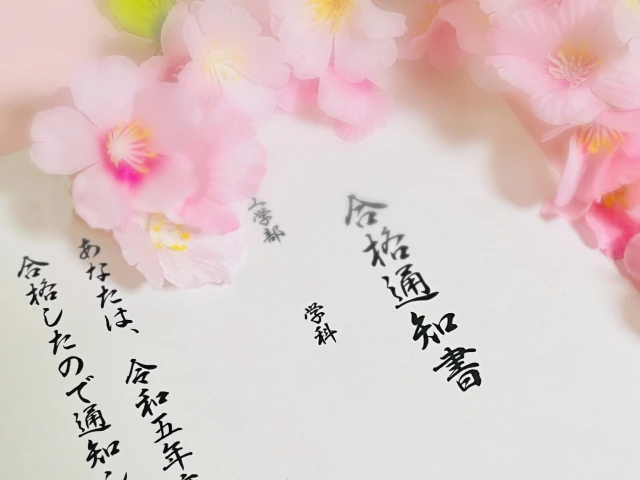 合格通知書
学部
学科
あなたは、令和五年
合格したので通知